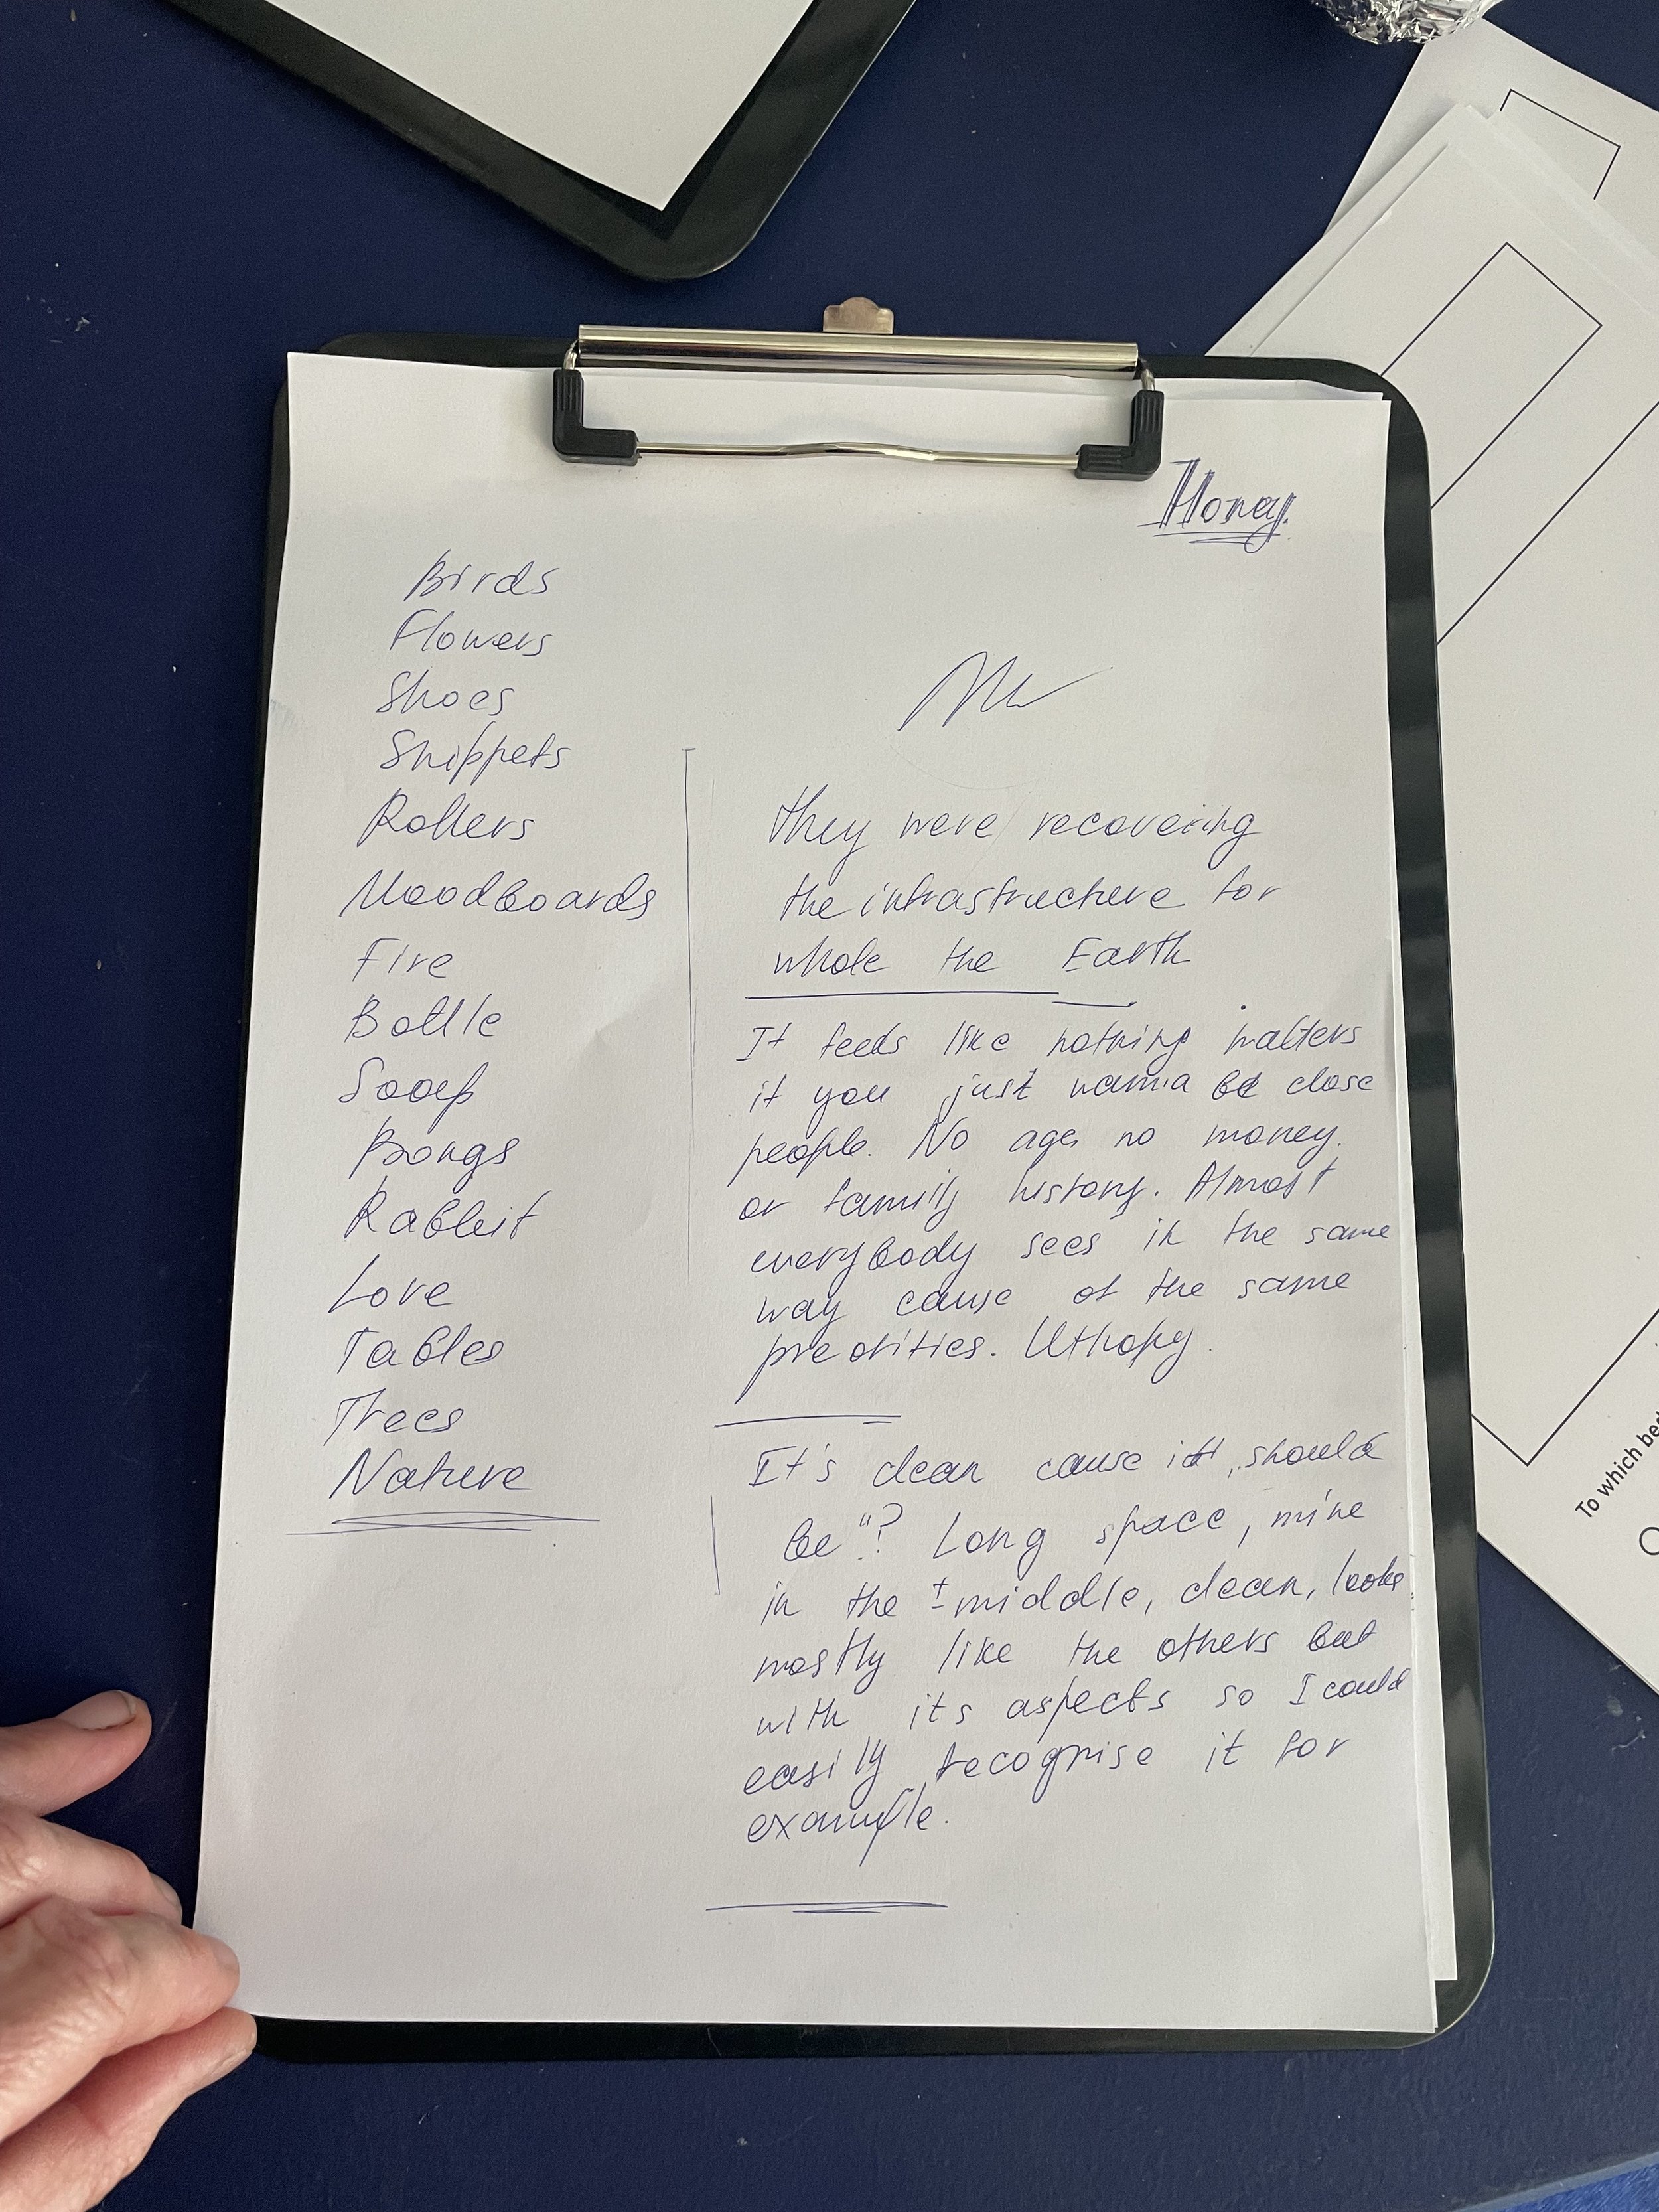 Honey.
Birds
Flowers
Shoes
Snippets
Rollers
Moodboards
Fire
Bottle
Soap
Bongs
Rabbit
Love
Tables
Trees
Nature
they were recovering
the infrastructure for
whole the Earth
It feels like nothing matters
if you just wanna be close
people. No age, no money.
or family history. Almost
everybody sees it the same
way cause of the same
preorities. Uthopy.
It's clean cause it „should
be"? Long space, mine
in the ± middle, clean, looks
mostly like the others but
with its aspects so I could
easily recognise it for
example.
To which